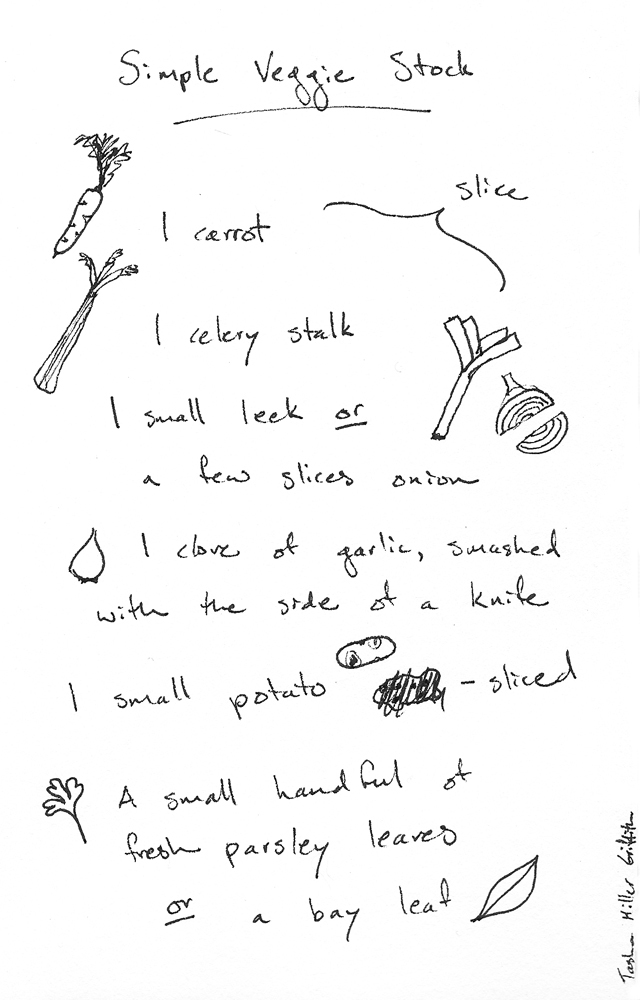 Simple Veggie Stock
slice
1 carrot
1 celery stalk
1 small leek or
a few slices onion
1 clove of garlic, smashed
with the side of a knife
1 small potato - sliced
A small handful of
fresh parsley leaves
or a bay leaf
Tasha Miller Griffith